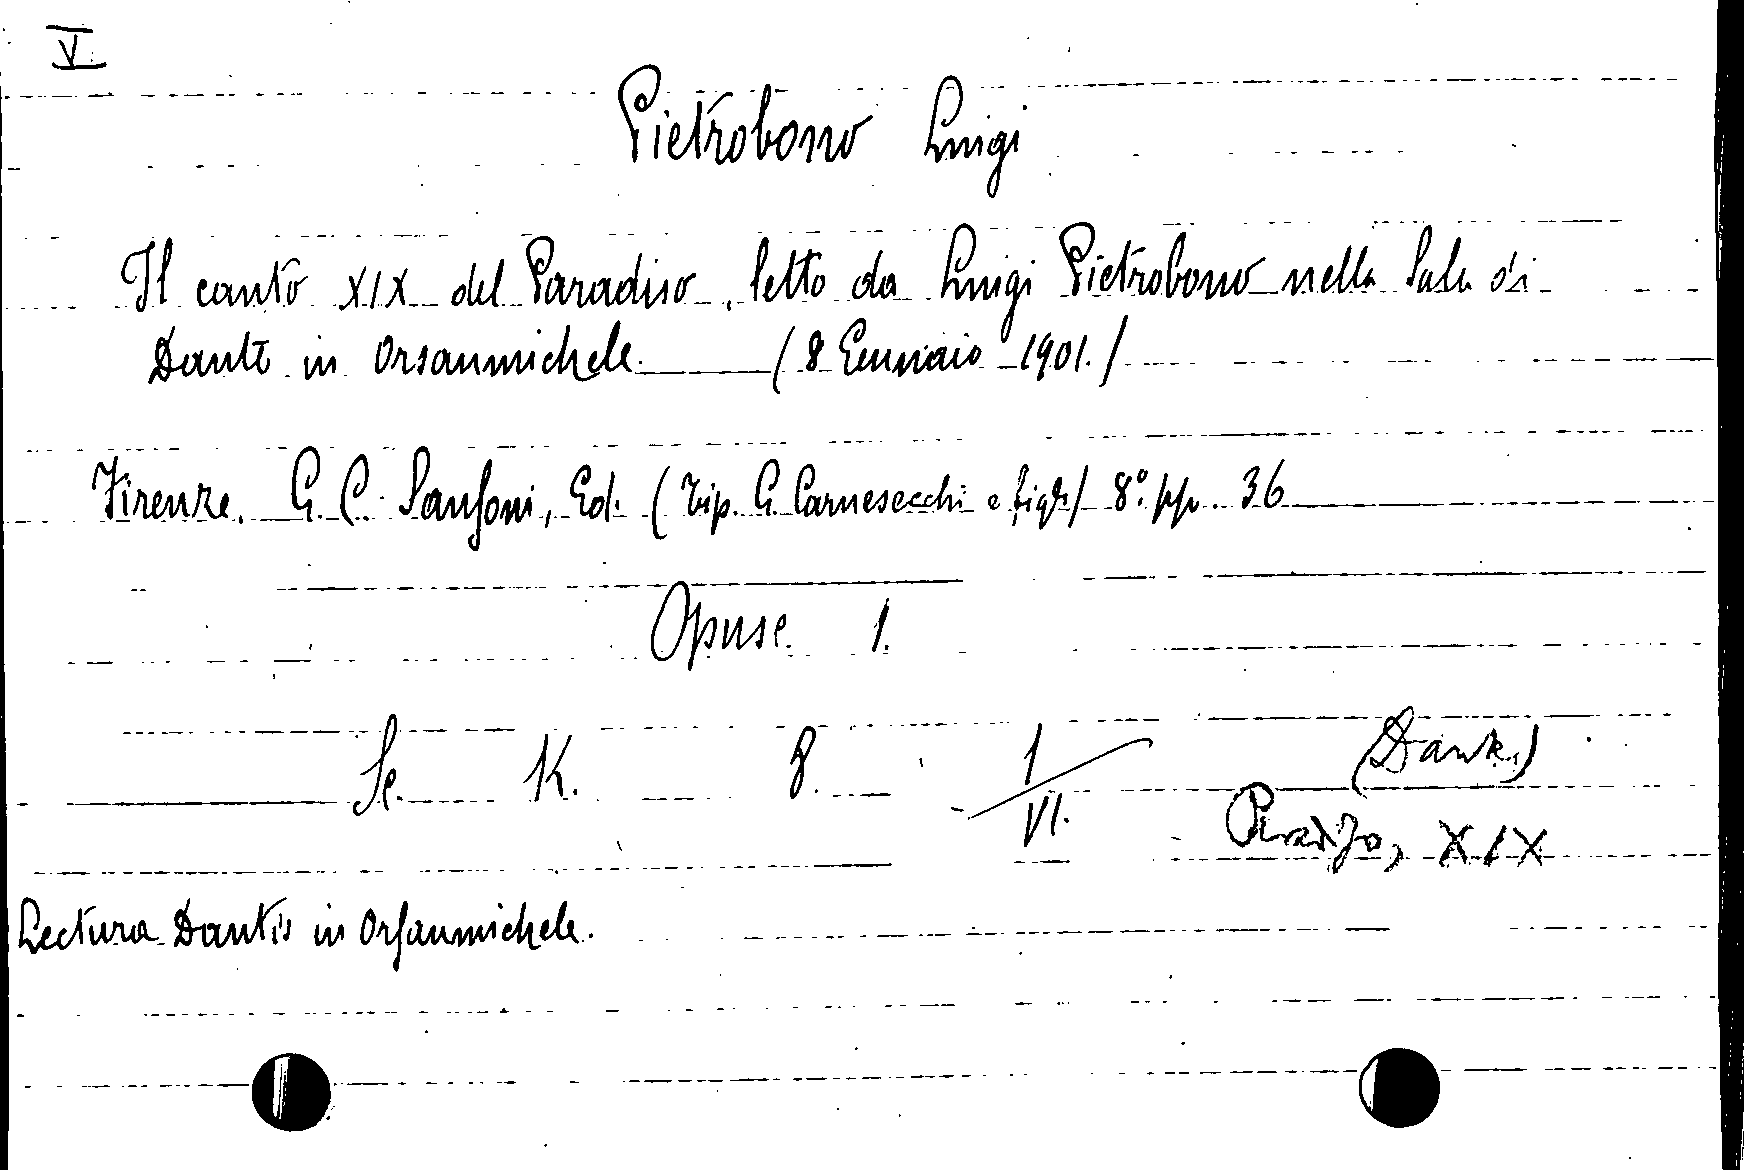 V
Pietrobono Luigi
Il canto XIX del Paradiso, letto da Luigi Pietrobono nella Sala di
Dante in Orsanmichele. (8 Gennaio 1901.)
Firenze. G. C. Sansoni, Ed. (Tip. G. Carnesecchi e figli) 8º. pp. 36
Opusc. 1.
Sc. K. 8. 1/VI. (Dante)
Paradiso, XIX
Lectura Dantis in Orsanmichele.